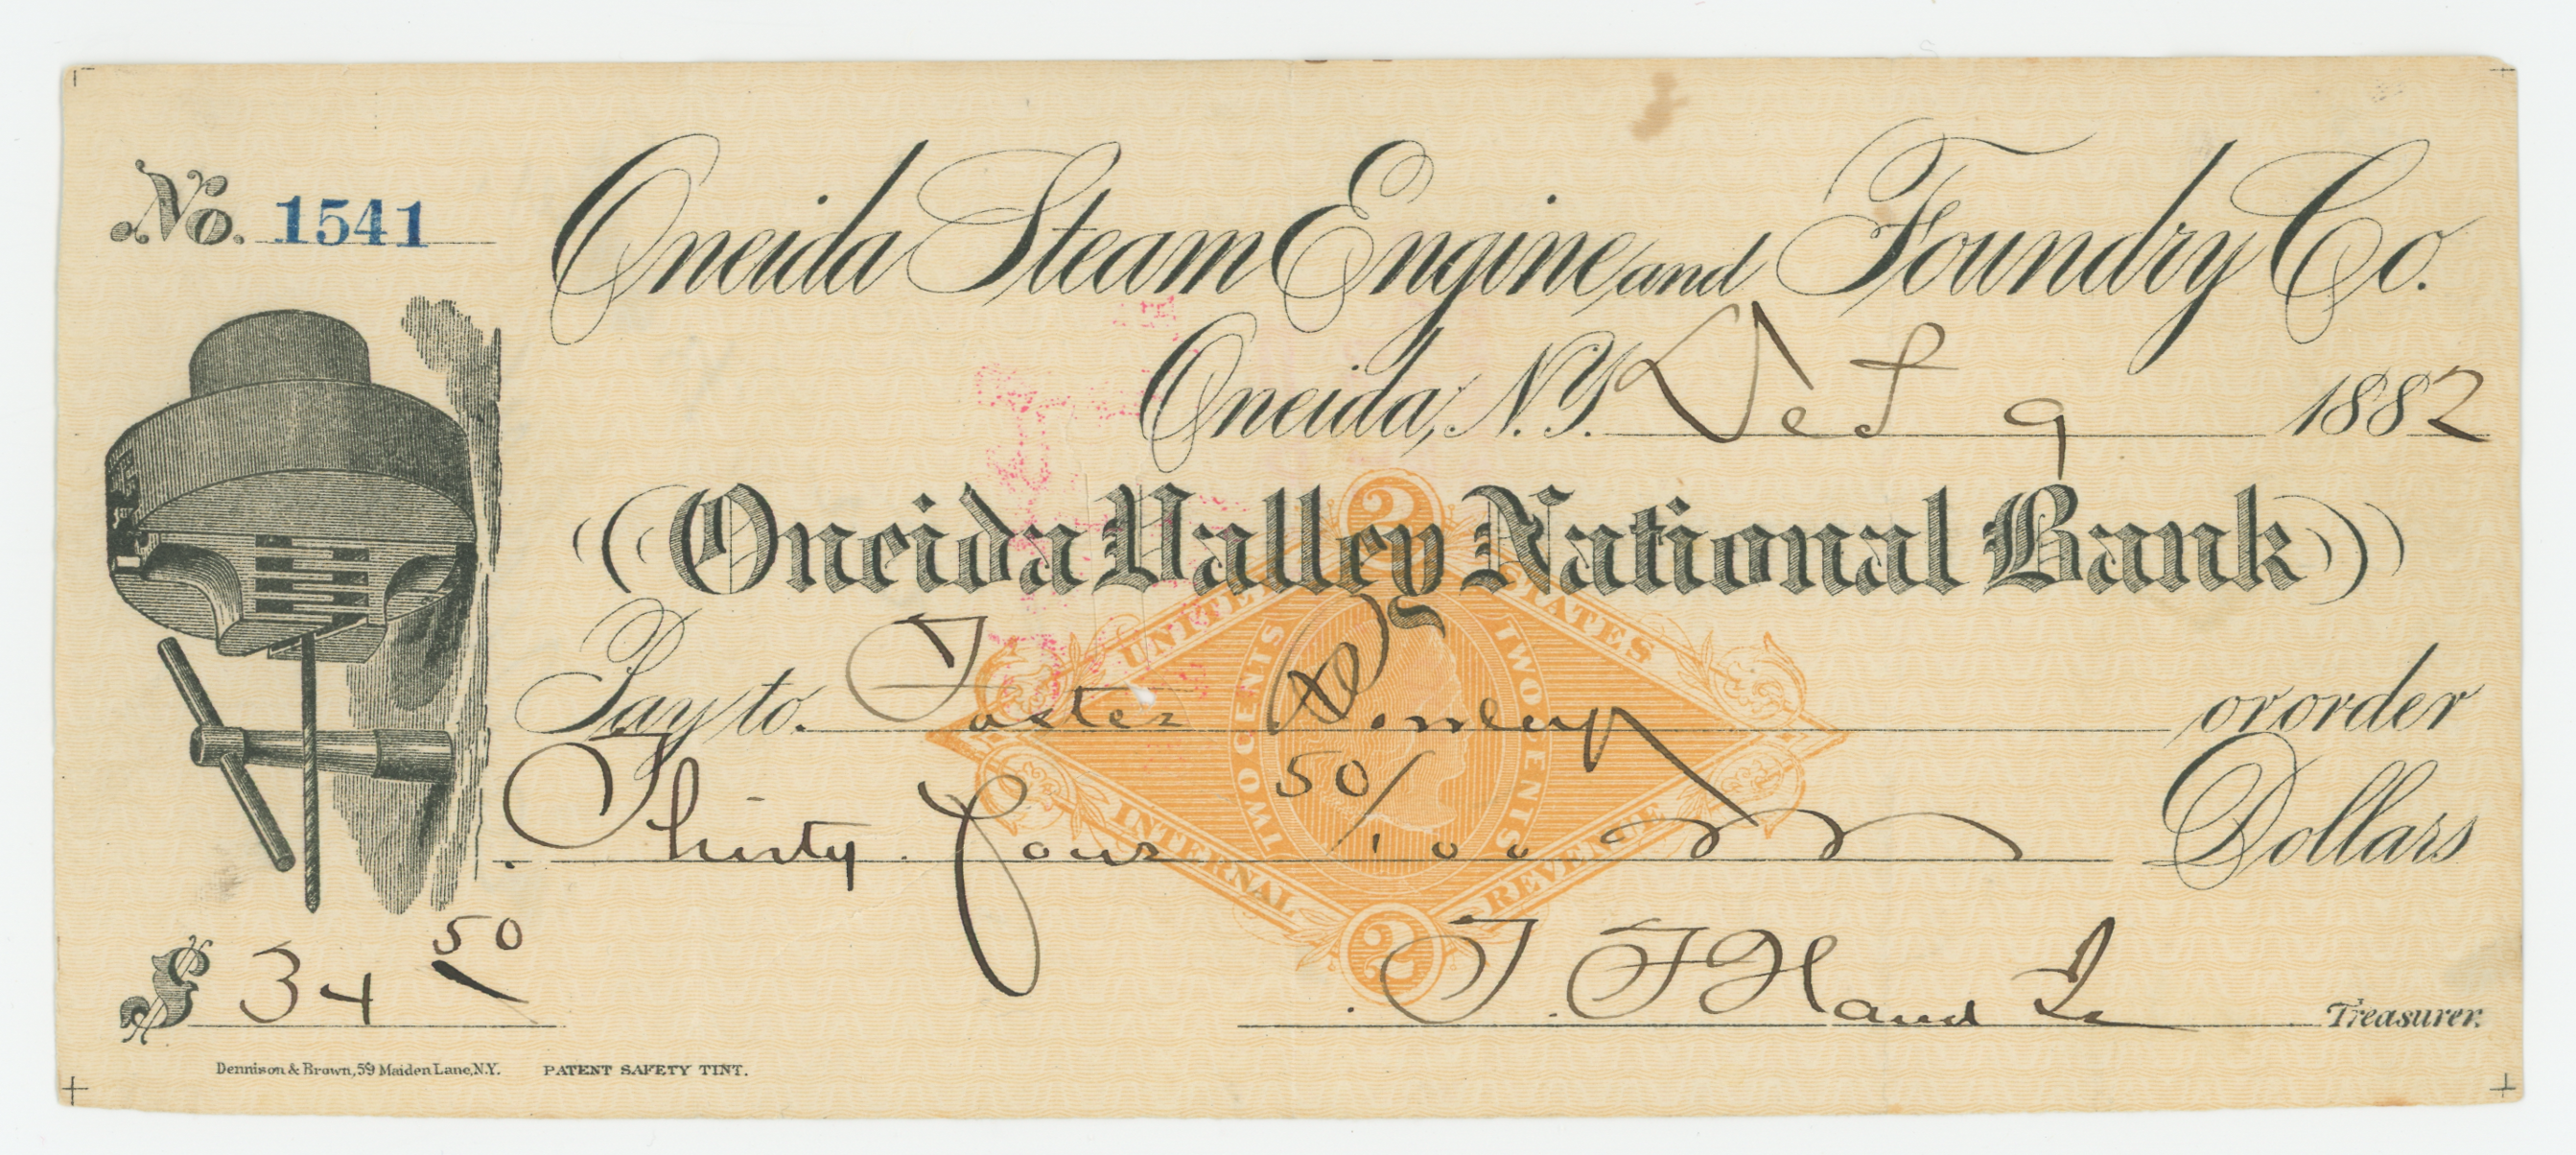 No. 1541
Oneida Steam Engine and Foundry Co.
Oneida, N.Y. 9 1882
Oneida Valley National Bank
Pay to Foster or order
Thirty four 50/100 Dollars
$ 34 50
T. F. Hand Treasurer.
2
UNITED STATES
TWO CENTS
TWO CENTS
INTERNAL REVENUE
2
Dennison & Brown, 59 Maiden Lane, N.Y. PATENT SAFETY TINT.